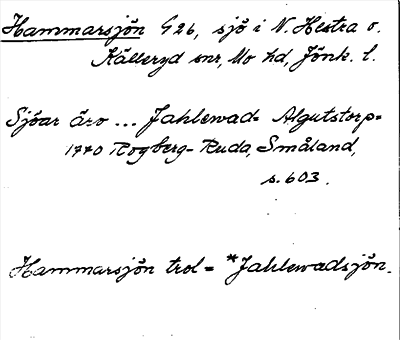 Hammarsjön G26, sjö i N. Hestra o.
Kålleryd snr, Mo hd, Jönk. l.
Sjöar äro ... Jahlewad= Algutstorp=
1770 Rogberg-Ruda, Småland,
s. 603.
Hammarsjön trol = *Jahlewadsjön.